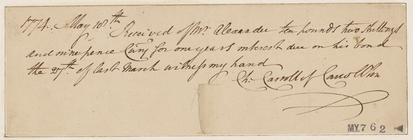 1774. May 10th Received of Mr. Alexander ten pounds two shillings
and nine pence Curcy for one years interest due on his bond
the 27th of last March witness my hand
Ch. Carroll of Carrollton
MY 762